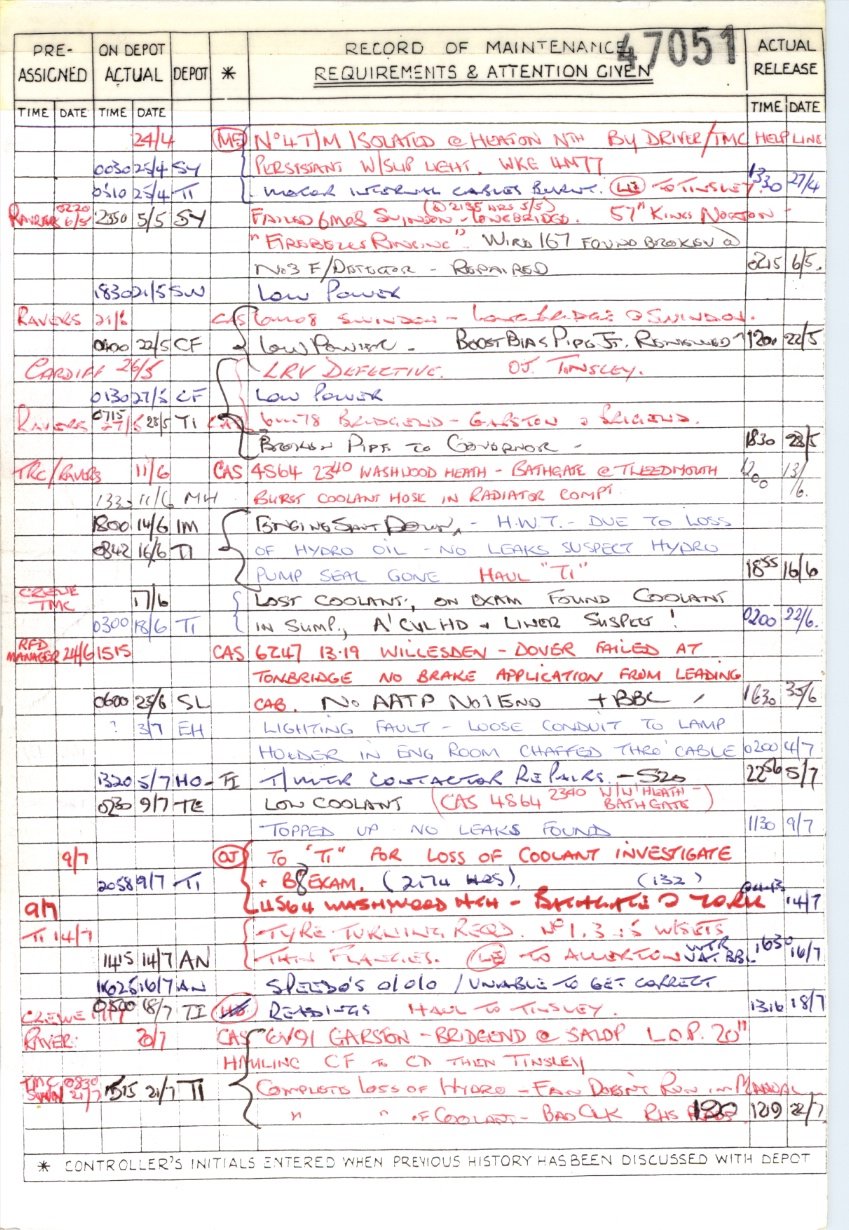 47051
PRE- ON DEPOT RECORD OF MAINTENANCE ACTUAL
ASSIGNED ACTUAL DEPOT * REQUIREMENTS & ATTENTION GIVEN RELEASE
TIME DATE TIME DATE TIME DATE
24/4 No 4 T/M ISOLATED @ HEATON NTH BY DRIVER/TMC HELP LINE
0030 25/4 SY PERSISTANT W/SLIP LIGHT. WKE 4N77
0510 25/4 TI MOTOR INTERNAL CABLES BURNT. TO TINSLEY. 1330 27/4
0220 (@ 2135 HRS 5/5)
RAVERS 6/5 2350 5/5 SY FAILED 6M08 SWINDON - LONGBRIDGE. 57" KINGS NORTON -
"FIREBELLS RINGING" WIRE 167 FOUND BROKEN @
No3 F/DETECTOR - REPAIRED 0215 6/5.
1830 21/5 SW LOW POWER
RAVERS CAS 6M08 SWINDON - LONGBRIDGE @ SWINDON.
0400 22/5 CF LOW POWER - BOOST BIAS PIPE JT. RENEWED 1200 22/5
CARDIFF 26/5 LRV DEFECTIVE. OJ. TINSLEY.
0130 27/5 CF LOW POWER
RAVERS 27/5 0715 28/5 TI 6M78 BRIDGEND - GARSTON @ BRIGEND.
BROKEN PIPE TO GOVERNOR - 1830 28/5
TRC/RAVERS 11/6 CAS 4S64 2340 WASHWOOD HEATH - BATHGATE @ TWEEDMOUTH 1200 13/6.
1330 11/6 MH BURST COOLANT HOSE IN RADIATOR COMPT
1800 14/6 IM ENGING SHUT DOWN, - H.W.T. - DUE TO LOSS
0842 16/6 TI OF HYDRO OIL - NO LEAKS SUSPECT HYDRO
PUMP SEAL GONE HAUL "TI" 1855 16/6
CREWE TMC 17/6 LOST COOLANT, ON EXAM FOUND COOLANT
0300 18/6 TI IN SUMP, A' CYL HD & LINER SUSPECT! 0200 22/6.
RFD MANAGER 24/6 1515 CAS 6Z47 13.19 WILLESDEN - DOVER FAILED AT
TONBRIDGE NO BRAKE APPLICATION FROM LEADING
0600 25/6 SL CAB. No AATP No1 END + BBL 1630
? 3/7 EH LIGHTING FAULT - LOOSE CONDUIT TO LAMP
HOLDER IN ENG ROOM CHAFFED THRO' CABLE 0200 4/7
1320 5/7 HO-TI CONTACTOR REPAIRS. 2256 5/7
0230 9/7 TE LOW COOLANT (CAS 4S64 2340 W/W HEATH - BATHGATE)
TOPPED UP NO LEAKS FOUND 1130 9/7
9/7 OJ TO "TI" FOR LOSS OF COOLANT INVESTIGATE
2058 9/7 TI + B EXAM. (2174 HRS). (132)
9/7 4S64 WASHWOOD HTH - BATHGATE @ YORK 14/7
TI 14/7 TYRE TURNING REQD. No 1, 3 & 5 W/SETS
1415 14/7 AN THIN FLANGES. TO ALLERTON BBL 1630 16/7
1625 16/7 AN SPEEDO'S 0/0/0 / UNABLE TO GET CORRECT
CREWE 17/7 0500 18/7 TI READINGS HAUL TO TINSLEY. 1316 18/7
RAVER: 20/7 CAS 6V91 GARSTON - BRIDGEND @ SALOP L.O.P. 20"
HAULING CF TO CD THEN TINSLEY
TMC SWN 0830 21/7 1515 21/7 TI COMPLETE LOSS OF HYDRO - FAN DOESN'T RUN IN MANUAL
" " OF COOLANT - BAD RHS 1219 22/7
* CONTROLLER'S INITIALS ENTERED WHEN PREVIOUS HISTORY HAS BEEN DISCUSSED WITH DEPOT